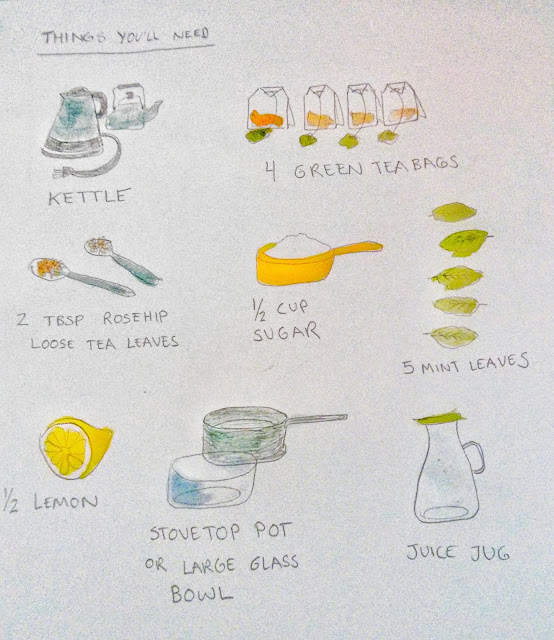 THINGS YOU'LL NEED
KETTLE
4 GREEN TEABAGS
2 TBSP ROSEHIP
LOOSE TEA LEAVES
1/2 CUP
SUGAR
5 MINT LEAVES
1/2 LEMON
STOVETOP POT
OR LARGE GLASS
BOWL
JUICE JUG